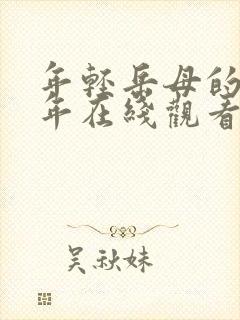 年轻岳母的
年在綫觀看
吴秋妹